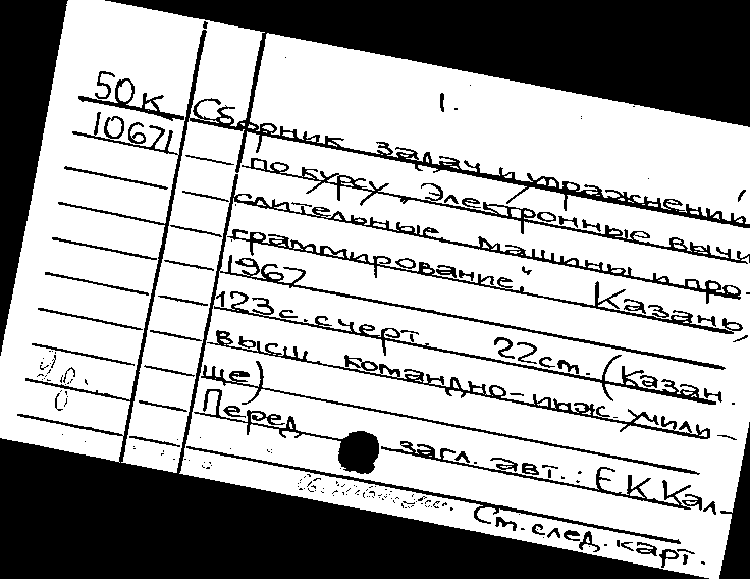 1.
50к Сборник задач и упражнений
10671 по курсу „Электронные вычи
слительные машины и про-
граммирование“. Казань,
1967
123с. с черт. 22см. (Казан.
высш. командно-инж. учили-
ще)
Перед загл. авт.: Е.К.Кал-
См. след. карт.